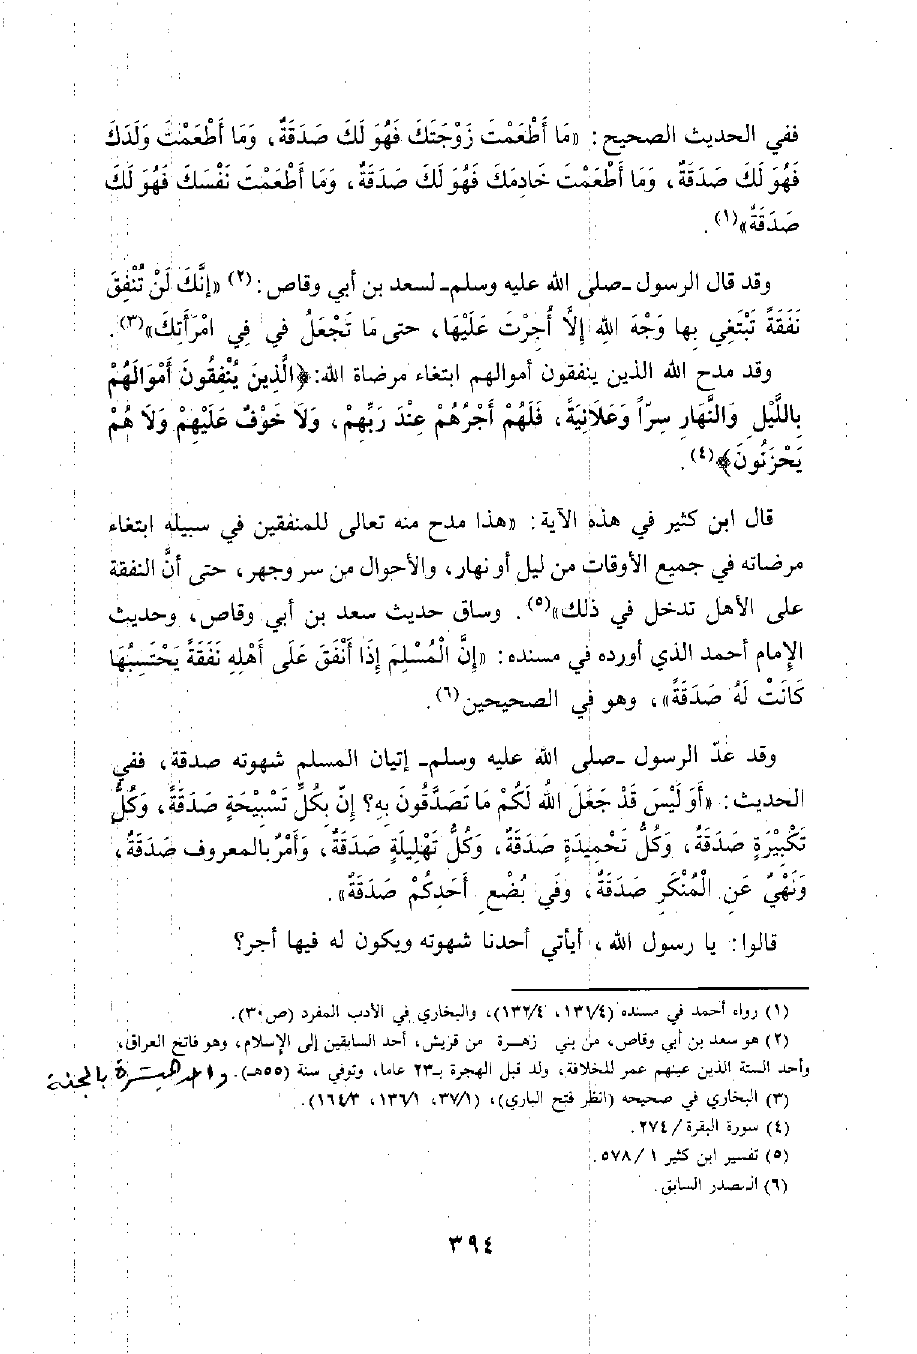 ففي الحديث الصحيح: «مَا أَطْعَمْتَ زَوْجَتَكَ فَهُوَ لَكَ صَدَقَةٌ، وَمَا أَطْعَمْتَ وَلَدَكَ
فَهُوَ لَكَ صَدَقَةٌ، وَمَا أَطْعَمْتَ خَادِمَكَ فَهُوَ لَكَ صَدَقَةٌ، وَمَا أَطْعَمْتَ نَفْسَكَ فَهُوَ لَكَ
صَدَقَةٌ»(١).
وقد قال الرسول ـصلى الله عليه وسلمـ لسعد بن أبي وقاص:(٢) «إنَّكَ لَنْ تُنْفِقَ
نَفَقَةً تَبْتَغِي بها وَجْهَ اللهِ إلاَّ أُجِرْتَ عَلَيْهَا، حتى مَا تَجْعَلُ في فِي امْرَأَتِكَ»(٣).
وقد مدح الله الذين ينفقون أموالهم ابتغاء مرضاة الله: ﴿الَّذِينَ يُنْفِقُونَ أَمْوَالَهُمْ
بِاللَّيْلِ وَالنَّهَارِ سِرّاً وَعَلَانِيَةً، فَلَهُمْ أَجْرُهُمْ عِنْدَ رَبِّهِمْ، وَلَا خَوْفٌ عَلَيْهِمْ وَلَا هُمْ
يَحْزَنُونَ﴾(٤).
قال ابن كثير في هذه الآية: «هذا مدح منه تعالى للمنفقين في سبيله ابتغاء
مرضاته في جميع الأوقات من ليل أو نهار، والأحوال من سر وجهر، حتى أنَّ النفقة
على الأهل تدخل في ذلك»(٥). وساق حديث سعد بن أبي وقاص، وحديث
الإمام أحمد الذي أورده في مسنده: «إنَّ الْمُسْلِمَ إذَا أَنْفَقَ عَلَى أَهْلِهِ نَفَقَةً يَحْتَسِبُهَا
كَانَتْ لَهُ صَدَقَةً»، وهو في الصحيحين(٦).
وقد عدّ الرسول ـصلى الله عليه وسلمـ إتيان المسلم شهوته صدقة، ففي
الحديث: «أَوَ لَيْسَ قَدْ جَعَلَ اللهُ لَكُمْ مَا تَصَدَّقُونَ بِهِ؟ إنّ بِكُلِّ تَسْبِيْحَةٍ صَدَقَةً، وَكُلِّ
تَكْبِيْرَةٍ صَدَقَةٌ، وَكُلُّ تَحْمِيدَةٍ صَدَقَةٌ، وَكُلُّ تَهْلِيلَةٍ صَدَقَةٌ، وَأَمْرٌ بالمعروف صَدَقَةٌ،
وَنَهْيٌ عَنِ الْمُنْكَرِ صَدَقَةٌ، وَفِي بُضْعِ أَحَدِكُمْ صَدَقَةٌ».
قالوا: يا رسول الله، أيأتي أحدنا شهوته ويكون له فيها أجر؟
(١) رواه أحمد في مسنده (١٣١/٤، ١٣٢/٤)، والبخاري في الأدب المفرد (ص٣٠).
(٢) هو سعد بن أبي وقاص، من بني زهرة من قريش، أحد السابقين إلى الإسلام، وهو فاتح العراق،
وأحد الستة الذين عينهم عمر للخلافة، ولد قبل الهجرة بـ٢٣ عاما، وتوفي سنة (٥٥هـ). وأحد المبشرة بالجنة
(٣) البخاري في صحيحه (انظر فتح الباري)، (٣٧/١، ١٣٦/١، ١٦٤/٣).
(٤) سورة البقرة / ٢٧٤.
(٥) تفسير ابن كثير ١ / ٥٧٨.
(٦) المصدر السابق.
٣٩٤